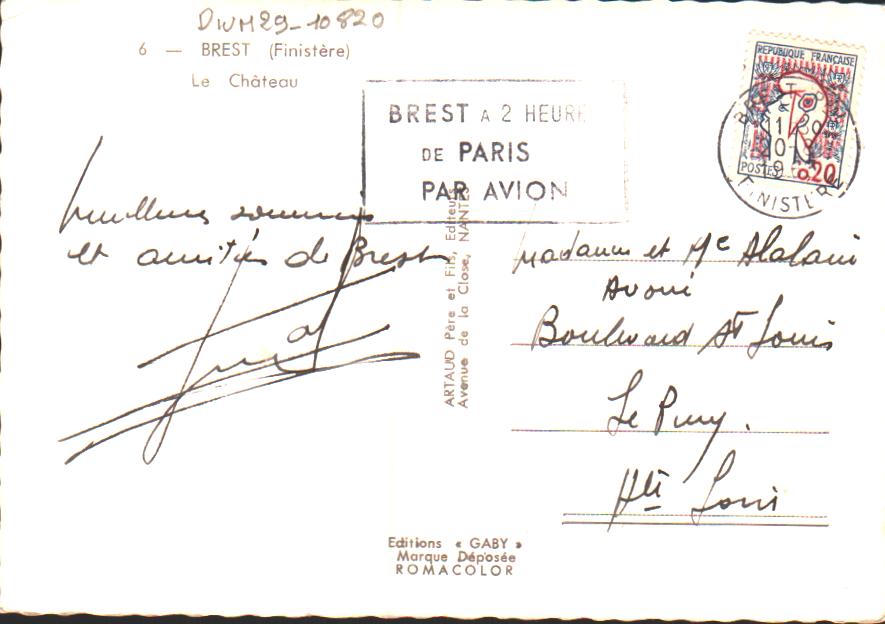 DIVM29-10820
6 — BREST (Finistère)
Le Château
BREST A 2 HEURE
DE PARIS
PAR AVION
REPUBLIQUE FRANÇAISE
POSTES 0,20
BREST
FINISTERE
meilleurs souvenirs
et amitiés de Brest
ARTAUD Père et Fils, Editeurs
Avenue de la Close, NANTES
Madame et Me Alalain
Avoué
Boulevard St Louis
Le Puy.
Hte Loire
Editions « GABY »
Marque Déposée
ROMACOLOR